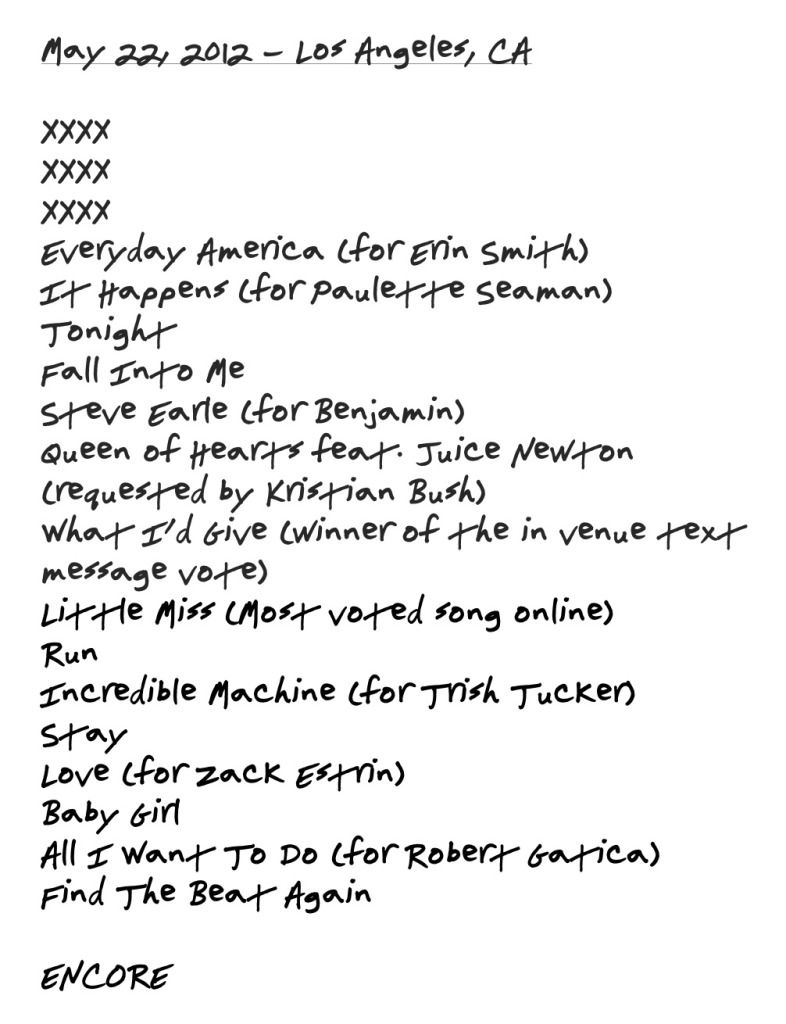 May 22, 2012 - Los Angeles, CA
XXXX
XXXX
XXXX
Everyday America (for Erin Smith)
It Happens (for Paulette Seaman)
Tonight
Fall Into Me
Steve Earle (for Benjamin)
Queen of Hearts feat. Juice Newton
(requested by Kristian Bush)
What I'd Give (winner of the in venue text
message vote)
Little Miss (Most voted song online)
Run
Incredible Machine (for Trish Tucker)
Stay
Love (for Zack Estrin)
Baby Girl
All I Want To Do (for Robert Gatica)
Find The Beat Again
ENCORE